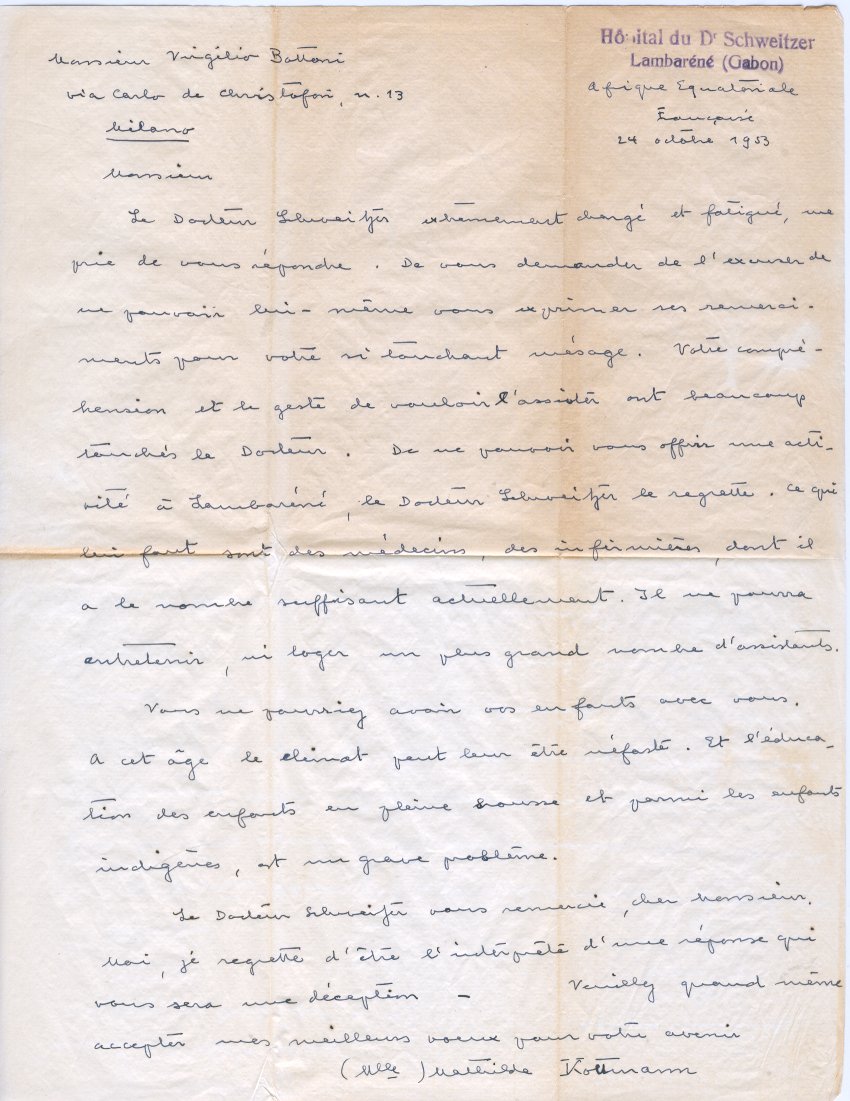 Hôpital du Dr Schweitzer
Lambaréné (Gabon)
Monsieur Virgilio Bottoni
via Carlo de Christofori, n. 13
Milano
Afrique Equatoriale
Française
24 octobre 1953
Monsieur
Le Docteur Schweitzer extrêmement chargé et fatigué, me
prie de vous répondre. De vous demander de l'excuser de
ne pouvoir lui-même vous exprimer ses remerci-
ments pour votre si touchant mésage. Votre compré-
hension et le geste de vouloir l'assister ont beaucoup
touchés le Docteur. De ne pouvoir vous offrir une acti-
vité à Lambaréné, le Docteur Schweitzer le regrette. Ce qui
lui faut sont des médecins, des infirmières, dont il
a le nombre suffisant actuellement. Il ne pourra
entretenir, ni loger un plus grand nombre d'assistants.
Vous ne pourriez avoir vos enfants avec vous.
A cet âge le climat peut leur être néfaste. Et l'éduca-
tion des enfants en pleine brousse et parmi les enfants
indigènes, est un grave problème.
Le Docteur Schweitzer vous remercie, cher Monsieur.
Moi, je regrette d'être l'intérprète d'une réponse qui
vous sera une déception - Veuillez quand même
accepter mes meilleurs voeux pour votre avenir
(Mlle) Mathilde Kottmann